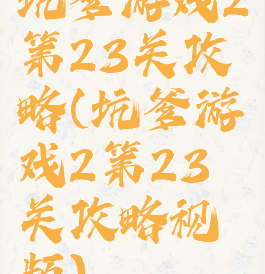 坑爹游戏2
第23关攻
略(坑爹游
戏2第23
关攻略视
频)